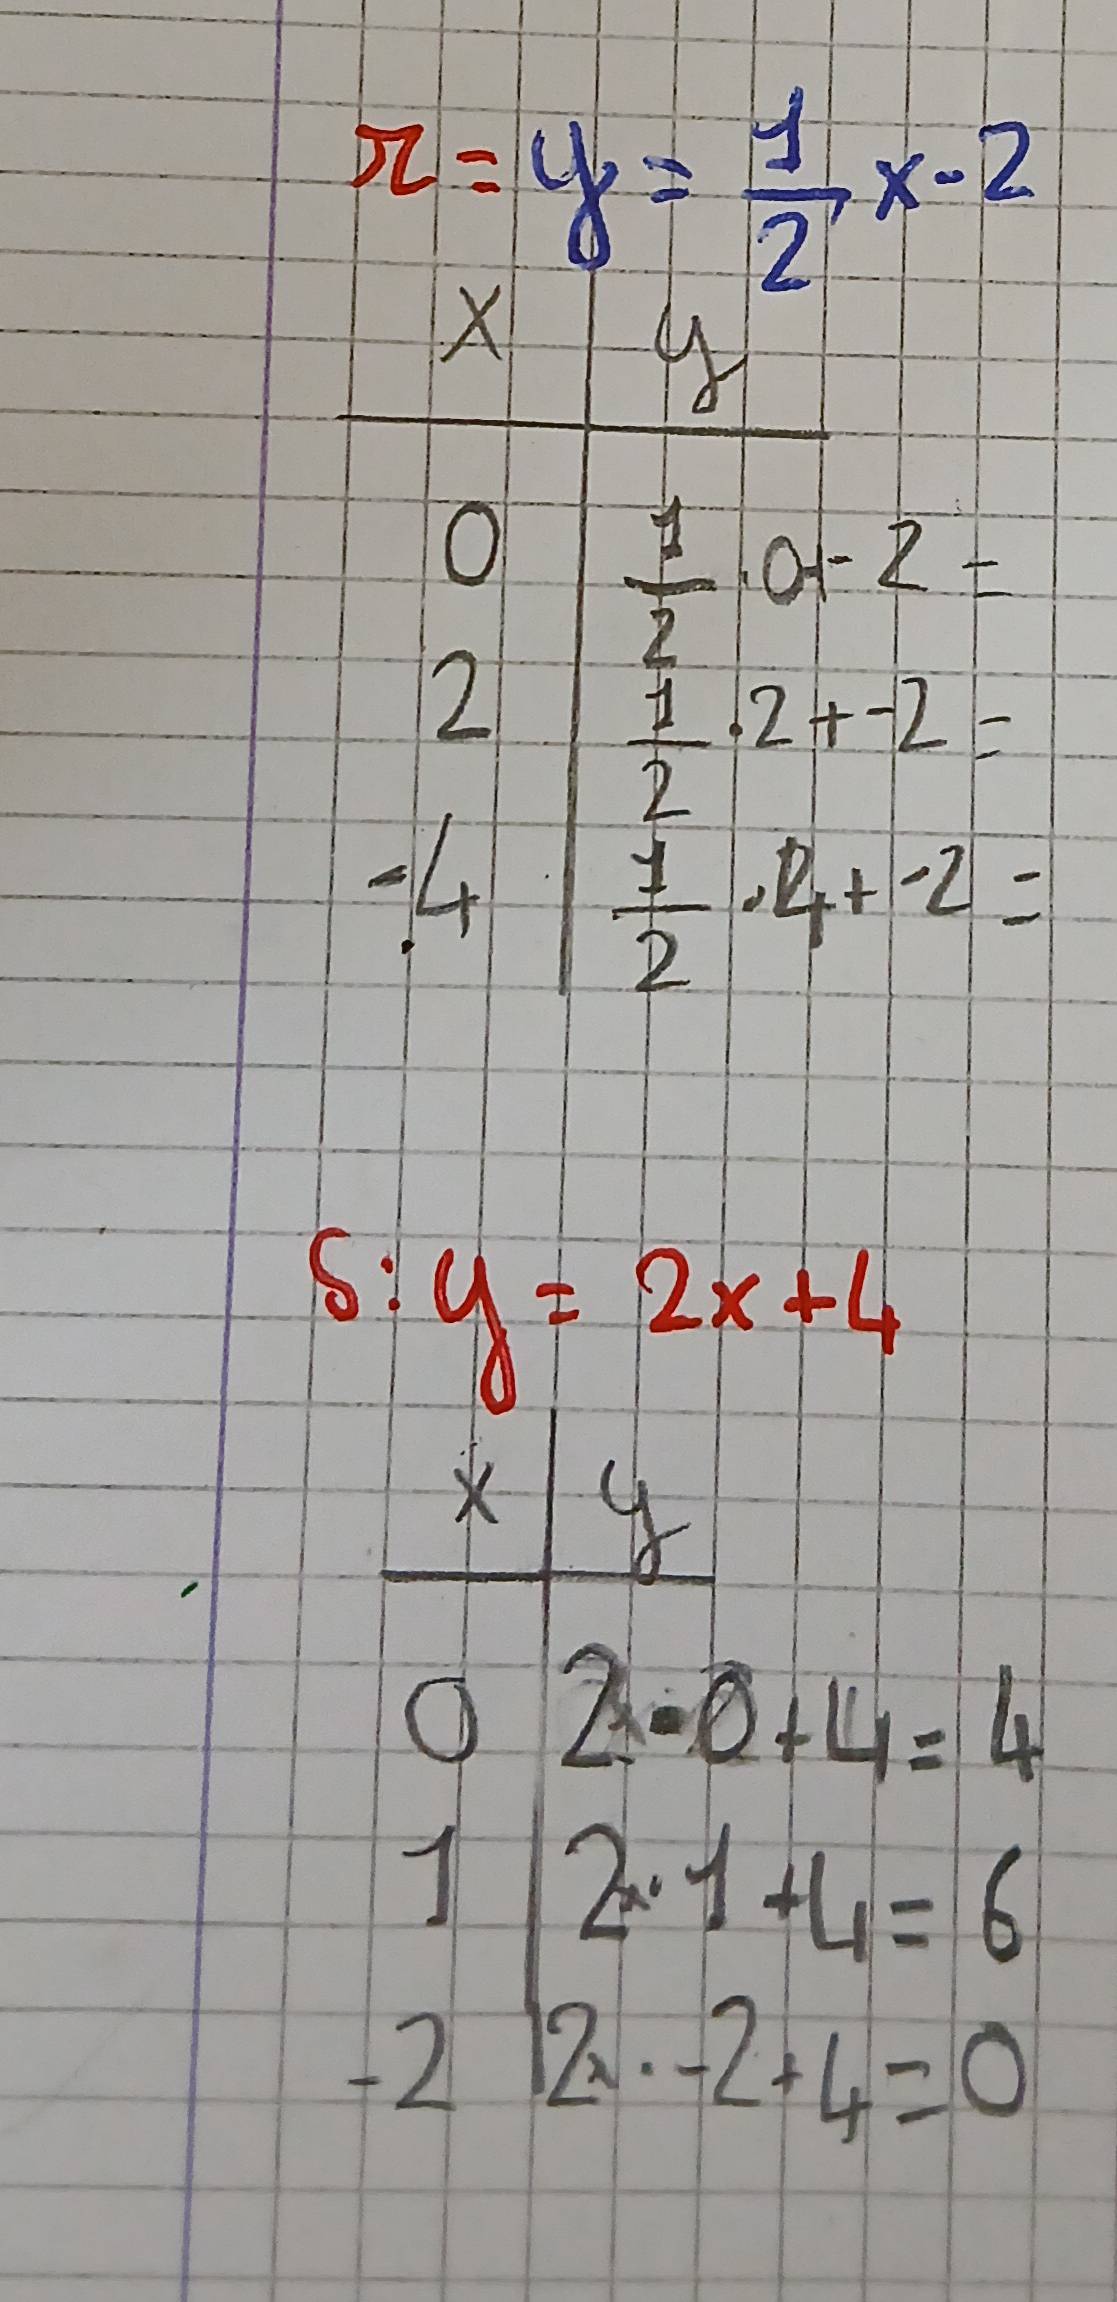 r = y = 1/2 x - 2
x y
0 1/2 · 0 + - 2 =
2 1/2 · 2 + -2 =
-4 1/2 · 4 + -2 =
s: y = 2x + 4
x y
0 2 · 0 + 4 = 4
1 2 · 1 + 4 = 6
-2 2 · -2 + 4 = 0